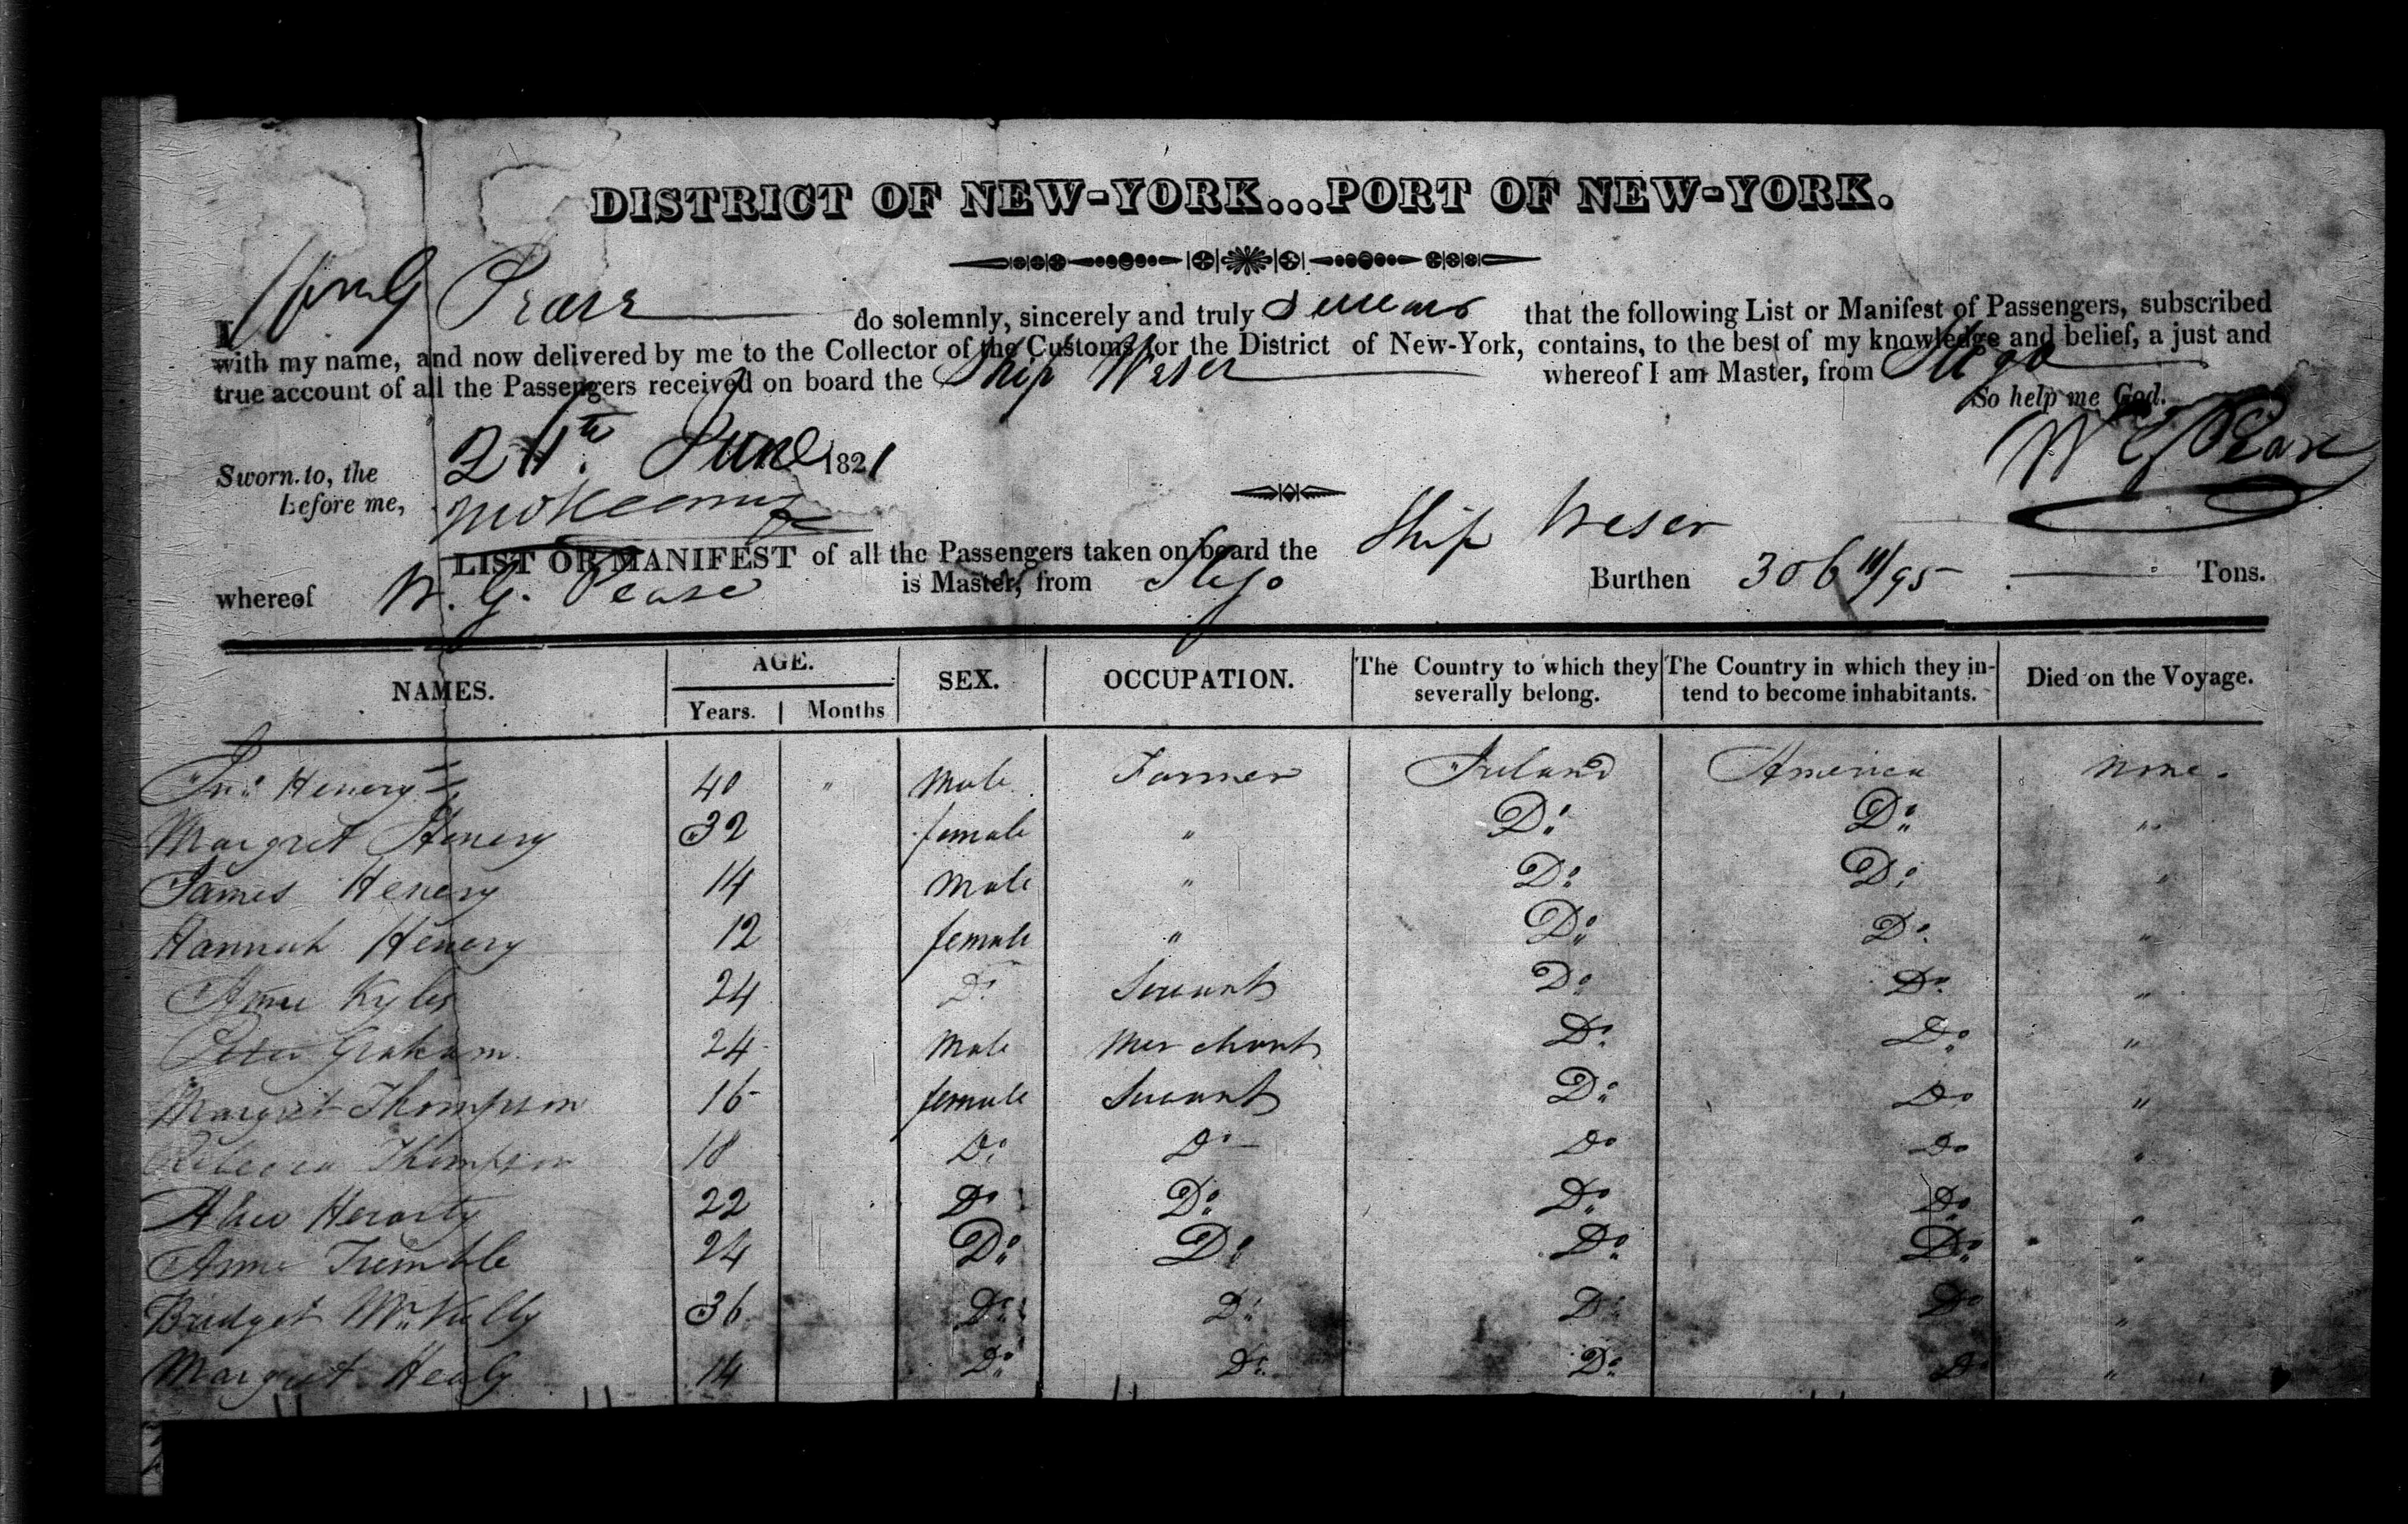 DISTRICT OF NEW-YORK...PORT OF NEW-YORK.
I Wm G Pease do solemnly, sincerely and truly Swear that the following List or Manifest of Passengers, subscribed
with my name, and now delivered by me to the Collector of the Customs for the District of New-York, contains, to the best of my knowledge and belief, a just and
true account of all the Passengers received on board the Ship Weser whereof I am Master, from Sligo
So help me God.
W G Pease
Sworn to, the 24th June 1821
before me,
LIST OR MANIFEST of all the Passengers taken on board the Ship Weser
whereof W. G. Pease is Master, from Sligo Burthen 306 /95 Tons.
NAMES. AGE. SEX. OCCUPATION. The Country to which they severally belong. The Country in which they intend to become inhabitants. Died on the Voyage.
Years. Months
Jno Henery 40 " Male Farmer Ireland America None.
Margret Henery 32 female " Do Do "
James Henery 14 Male " Do Do "
Hannah Henery 12 female " Do Do "
Anne Kyles 24 Do Servant Do Do "
Peter Graham 24 Male Merchant Do Do "
Margret Thompson 16 female Servant Do Do "
Rebecca Thompson 18 Do Do Do Do "
Alice 22 Do Do Do Do "
Anne Trimble 24 Do Do Do Do "
Bridget 36 Do Do Do Do "
Margret Healy 14 Do Do Do Do "